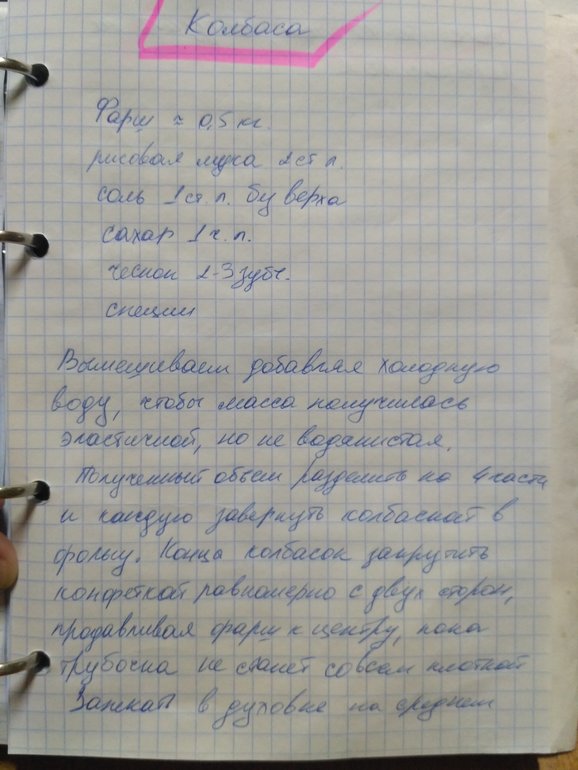 Колбаса
Фарш ≈ 0,5 кг.
рисовая мука 2 ст л.
соль 1 ст. л. без верха
сахар 1 ч. л.
чеснок 2-3 зубч.
специи
Вымешиваем добавляя холодную
воду, чтобы масса получилась
эластичной, но не водянистая.
Полученный объем разделить на 4 части
и каждую завернуть колбаской в
фольгу. Конца колбасок закрутить
конфеткой равномерно с двух сторон,
продавливая фарш к центру, пока
трубочка не станет совсем плоткой
Запекать в духовке на среднем